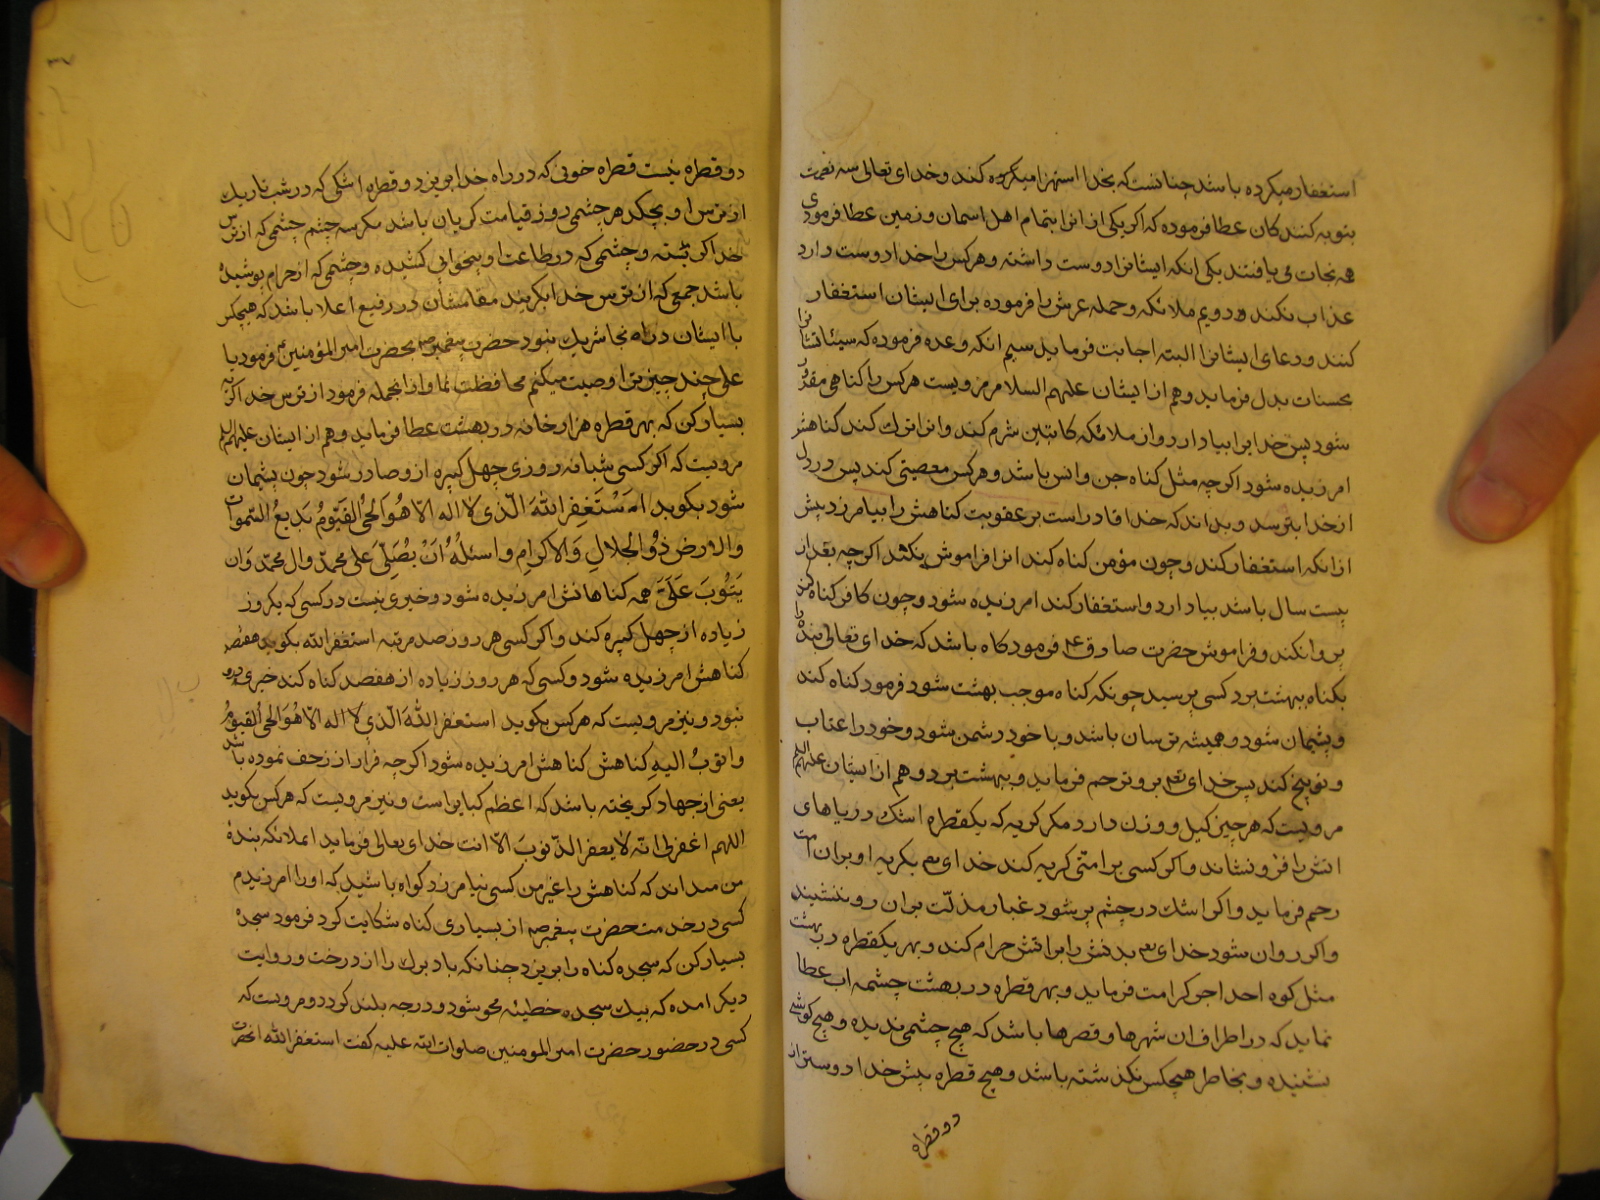 استغفار میکرده باشد چنانست که بخدا استهزا میکرده کند و خدای تعالی سه نعمت
بتوبه کنندکان عطا فرموده که اکر یکی از انرا بتمام اهل اسمان و زمین عطا فرمودی
همه نجات می یافتند یکی انکه ایشانرا دوست داشته و هر کس را خدا دوست دارد
عذاب نکند و دویم ملائکه و حمله عرش را فرموده برای ایشان استغفار
کنند و دعای ایشانرا البته اجابت فرماید سیم انکه وعده فرموده که سیئاتشانرا
بحسنات بدل فرماید و هم از ایشان علیهم السلام مرویست هر کس را کناهی مقدر
شود پس خدا یرا بیاد ارد و از ملائکه کاتبین شرم کند و انرا ترک کند کناهش
امرزیده شود اکرچه مثل کناه جن و انس باشد و هر کس معصیتی کند پس در دل
از خدا بترسد و بداند که خدا قادر است بر عقوبت کناهش را بیامرزد پیش
ازانکه استغفار کند و چون مؤمن کناه کند انرا فراموش نکند اکرچه بعد از
بیست سال باشد بیاد ارد و استغفار کند امرزیده شود و چون کافر کناه کند
پروا نکند و فراموش حضرت صادق ع فرمود کاه باشد که خدای تعالی بنده را
بکناه ببهشت برد کسی پرسید چونکه کناه موجب بهشت شود فرمود کناه کند
و پشیمان شود و همیشه ترسان باشد و با خود دشمن شود و خود را عتاب
و توبیخ کند پس خدای تعه برو ترحم فرماید و ببهشت برد و هم از ایشان علیهم السلم
مرویست که هر چیز کیل و وزن دارد مکر کریه که یکقطره اشک دریاهای
اتش را فرو نشاند و اکر کسی برامتی کریه کند خدای تعه بکریه او بران امت
رحم فرماید و اکر اشک در چشم پر شود غبار مذلت بران رو ننشیند
و اکر روان شود خدای تعه بدنش را بر اتش حرام کند و بهر یکقطره در بهشت
مثل کوه احد اجر کرامت فرماید و بهر قطره در بهشت چشمه اب عطا
نماید که در اطراف ان شهرها و قصرها باشد که هیچ چشمی ندیده و هیچ کوشی
نشنیده و بخاطر هیچکس نکذشته باشد و هیچ قطره پیش خدا دوستر از
دو قطره
دو قطره نیست قطره خونی که در راه خدا بریزد و قطره اشکی که در شب تاریک
از ترس او بچکد هر چشمی روز قیامت کریان باشد مکر سه چشم چشمی که از ترس
خدا کریسته و چشمی که در طاعت او بیخوابی کشیده و چشمی که از حرام پوشیده
باشد جمعی که از ترس خدا بکریند مقامشان در رفیع اعلا باشد که هیچکس
با ایشان در انجا شریک نبود حضرت پیغمبر ص بحضرت امیر المؤمنین ع فرمود یا
علی چند چیز ترا وصیت میکنم محافظت نما و ازانجمله فرمود از ترس خدا کریه
بسیار کن که بهر قطره هزار خانه در بهشت عطا فرماید و هم از ایشان علیهم السلم
مرویست که اکر کسی شبانه روزی چهل کبیره ازو صادر شود چون پشیمان
شود بکوید اَسْتَغفِرُ اللهَ الَّذی لا اله الّا هُوَ الحَیُّ القَیّومُ بَدیعُ السّمواتِ
والارض ذوُ الجلالِ وَالاکرامِ و اسئلُهُ اَنْ یُصَلِّیَ عَلی محمّد وال محمّد وَان
یَتُوبَ عَلَیَّ همه کناهانش امرزیده شود و خیری نیست در کسی که بکروز
زیاده از چهل کبیره کند و اکر کسی هر روز صد مرتبه استغفر الله بکوید هفتصد
کناهش امرزیده شود و کسی که هر روز زیاده از هفصد کناه کند خیری درو
نبود و نیز مرویست که هر کس بکوید استغفر اللهَ الّذی لا اله الّا هُوَ الحیُّ القیّوُمُ
واتوبُ الیهِ کناهش کناهش امرزیده شود اکرچه فرار از زحف نموده باشد
یعنی از جهاد کریخته باشد که اعظم کبایر است و نیز مرویست که هر کس بکوید
اللهم اغفر لی انّه لا یغفر الذّنوبَ الّا انت خدای تعالی فرماید ای ملائکه بندۀ
من میداند که کناهش را غیر من کسی نیامرزد کواه باشید که اورا امرزیدم
کسی در خدمت حضرت پیغمبر ص از بسیاری کناه شکایت کرد فرمود سجده
بسیار کن که سجده کناه را بریزد چنانکه باد برک را از درخت و روایت
دیکر امده که بیک سجده خطیئه محو شود و درجه بلند کردد و مرویست که
کسی در حضور حضرت امیر المومنین صلوات الله علیه کفت استغفر الله انحضرت